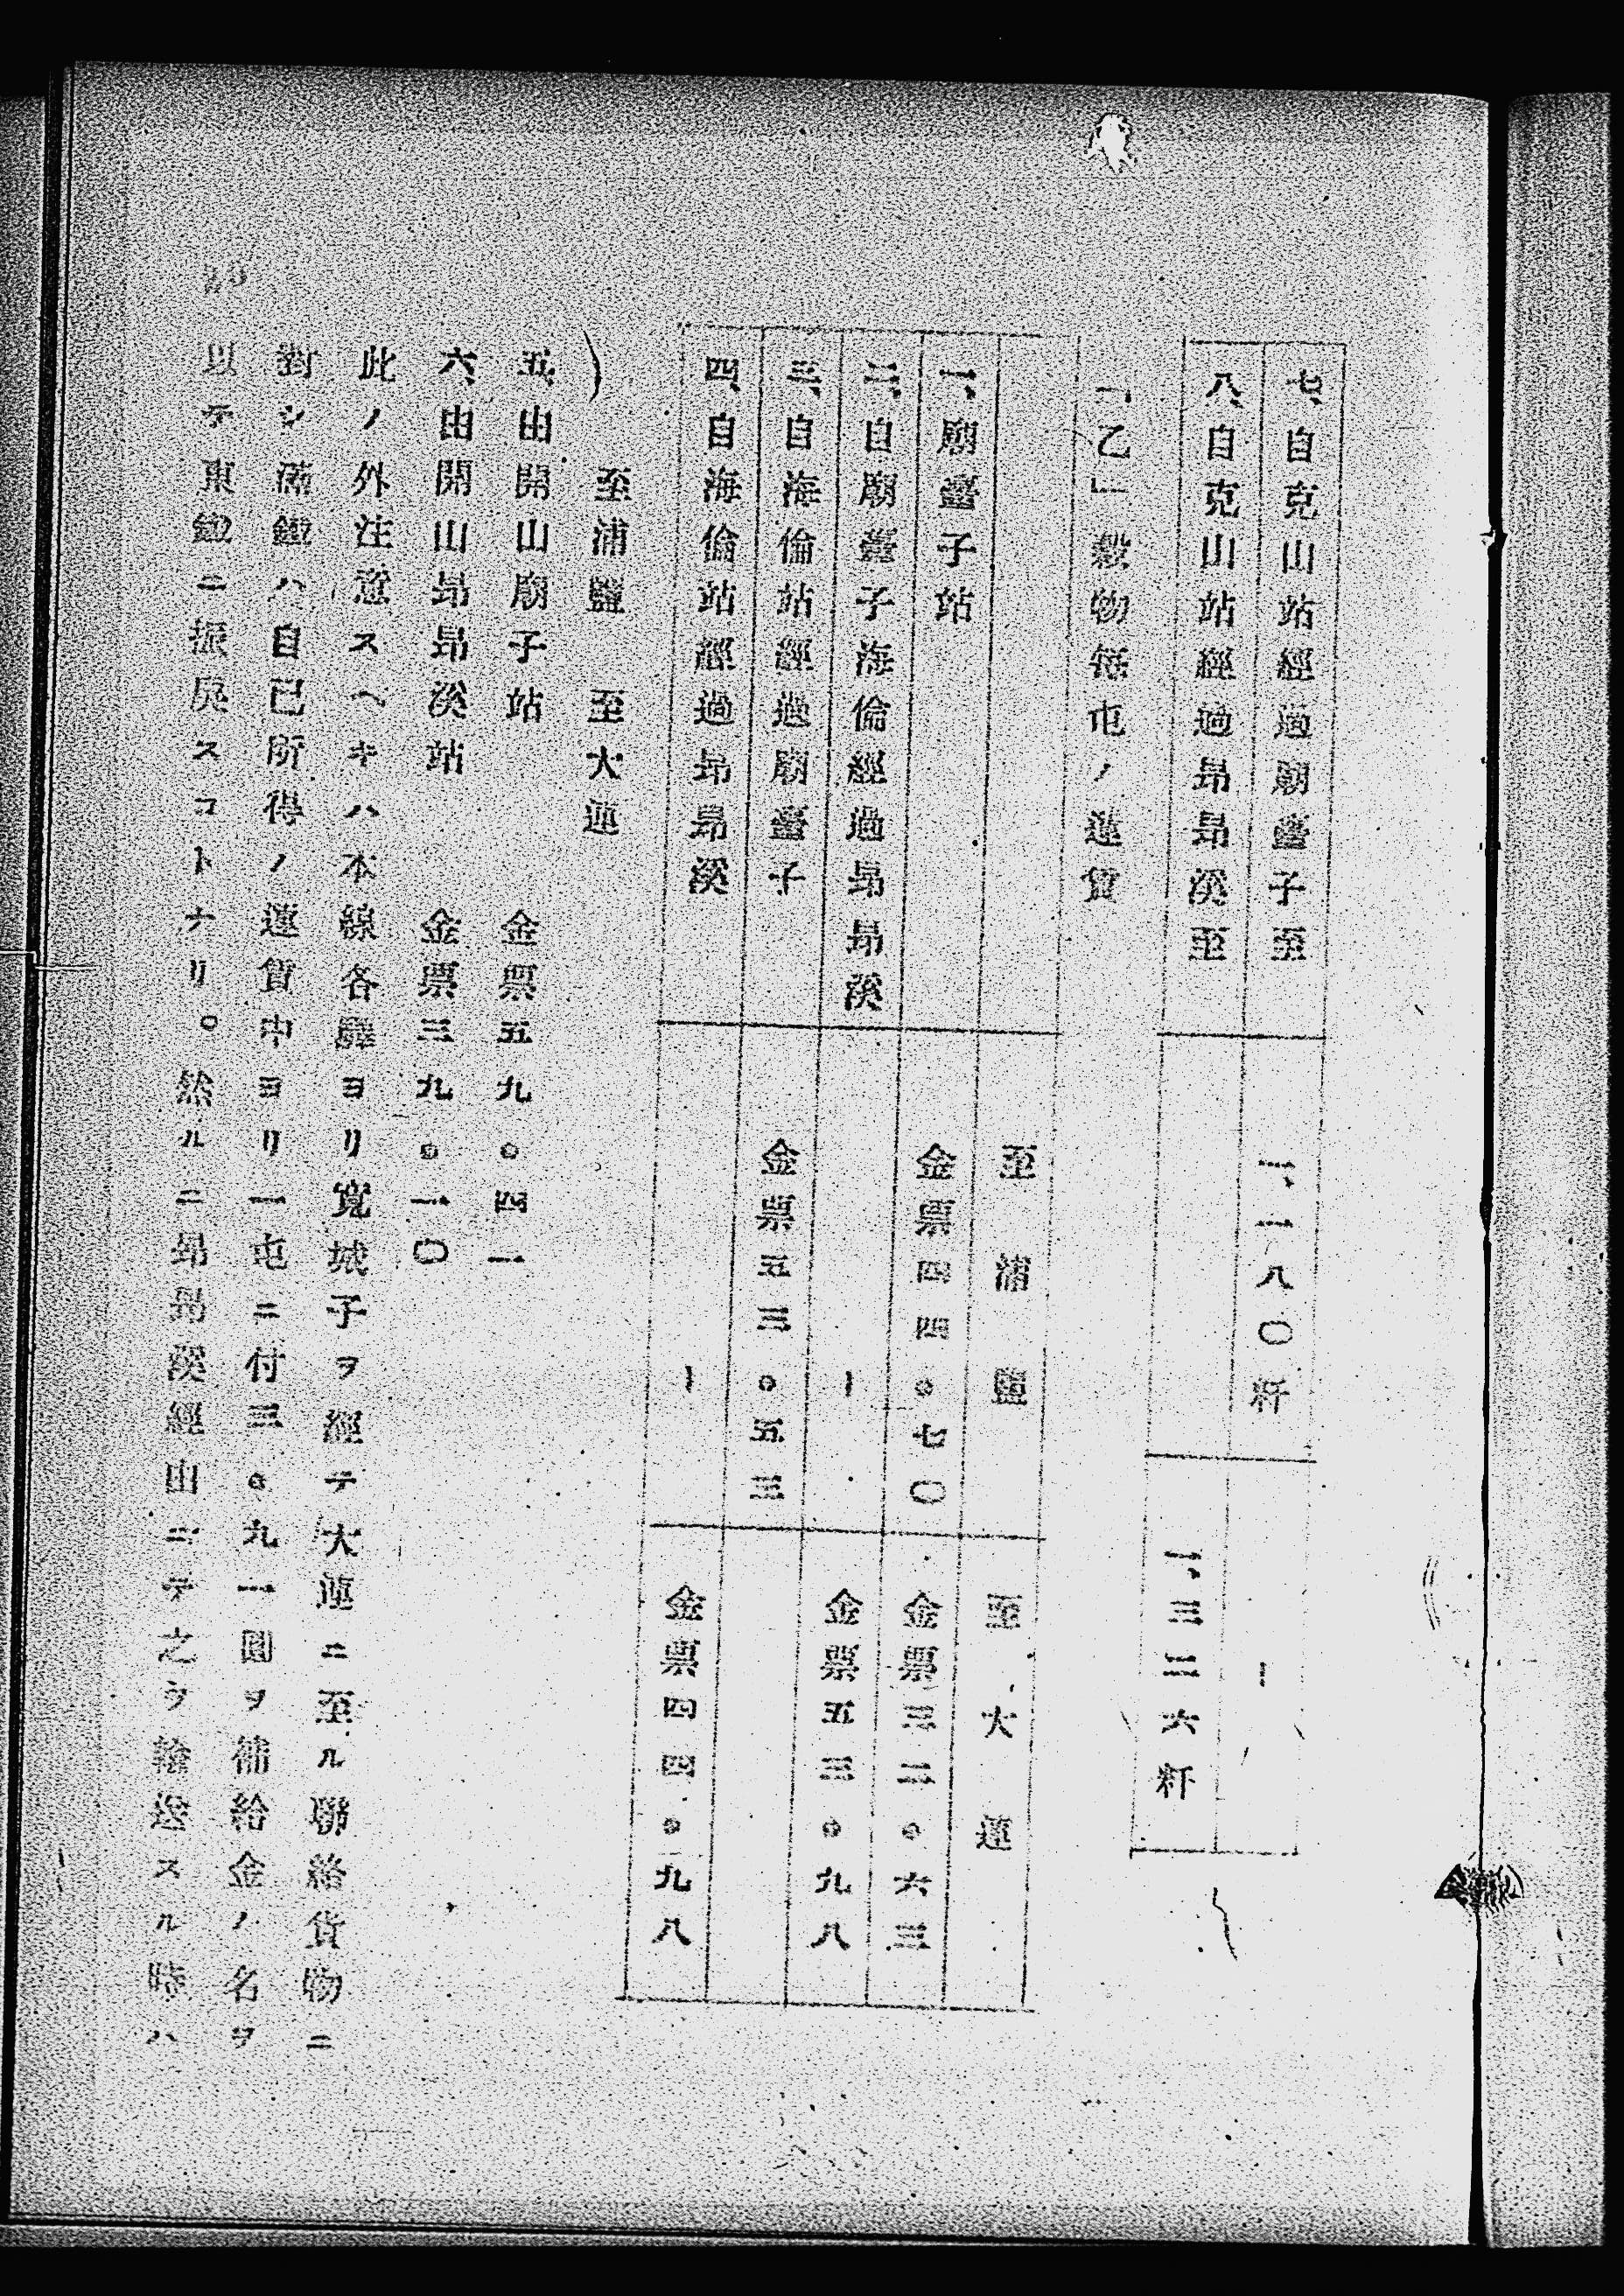 七、自克山站經過廟臺子至 一、一八〇粁 ー
八、自克山站經過昻昻溪至 一、三二六粁
「乙」穀物每屯ノ運賃
至浦鹽 至大連
一、廟臺子站 金票四四。七〇 金票三二。六三
二、自廟臺子海倫經過昻昻溪 ー 金票五三。九八
三、自海倫站經過廟臺子 金票五三。五三
四、自海倫站經過昻昻溪 ー 金票四四。九八
至浦鹽 至大連
五、由開山廟子站 金票五九。四一
六、由開山昻昻溪站 金票三九。一〇
此ノ外注意スヘキハ本線各驛ヨリ寬城子ヲ經テ大連ニ至ル聯絡貨物ニ
對シ滿鐵ハ自己所得ノ運賃中ヨリ一屯ニ付三。九一圓ヲ補給金ノ名ヲ
以テ東鐵ニ振戾スコトナリ。然ルニ昻昻溪經由ニテ之ヲ輸送スル時ハ